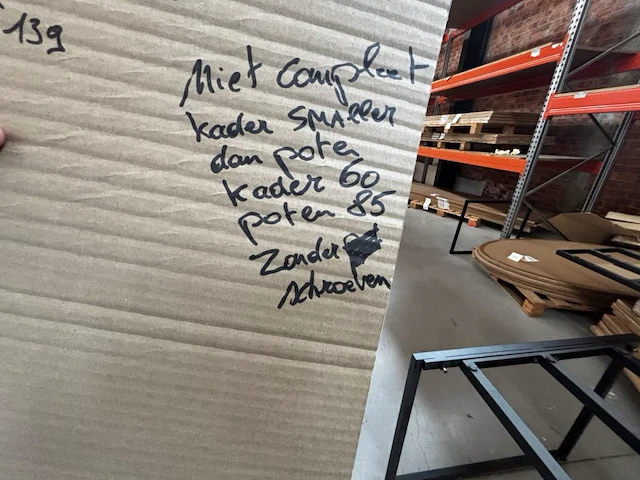 139
Niet compleet
kader smaller
dan poten
kader 60
poten 85
Zonder
schroeven